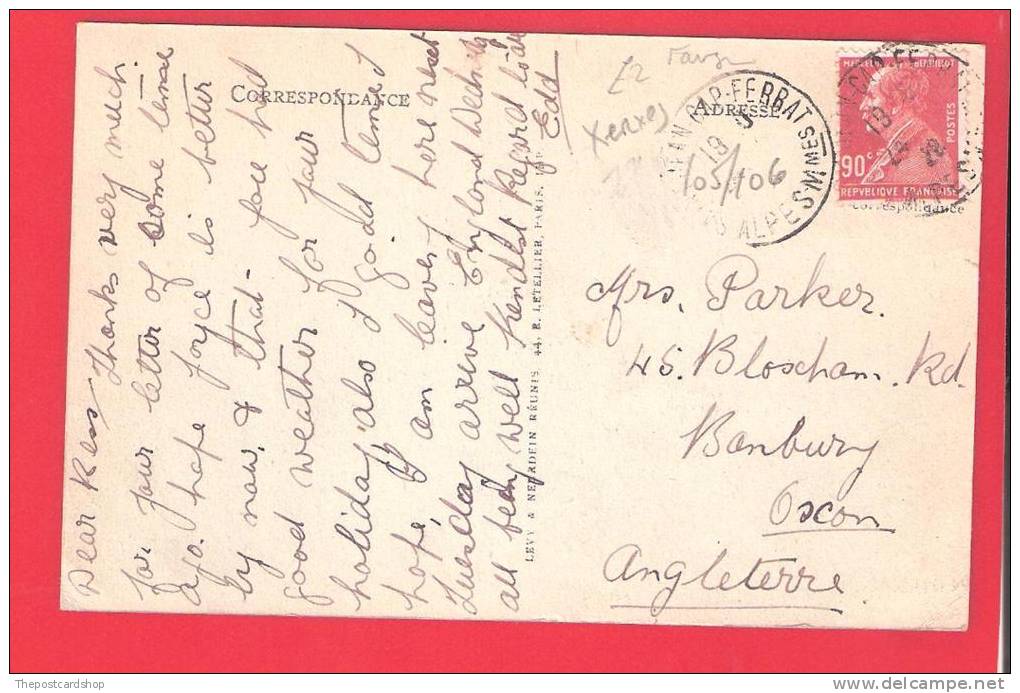 CORRESPONDANCE
Dear Kess Thanks very much
for your letter of some time
ago. hope Joyce is better
by now, & that you had
good weather for your
holiday also a good time I
hope, I am leaving here next
Tuesday arrive England Wednesday
all being well Kindest Regards to all
Edd
LEVY & NEURDEIN RÉUNIS, 44, R. LETELLIER, PARIS, IMP.
£2
Xerxes
105/106
ADRESSE
CAP-FERRAT
ALPES MMES
MARCELIN BERTHELOT
POSTES
90c
REPVBLIQVE FRANÇAISE
Correspondance
Mrs. Parker.
45. Bloxham. Rd.
Banbury
Oxon
Angleterre
Thepostcardshop
© www.delcampe.net